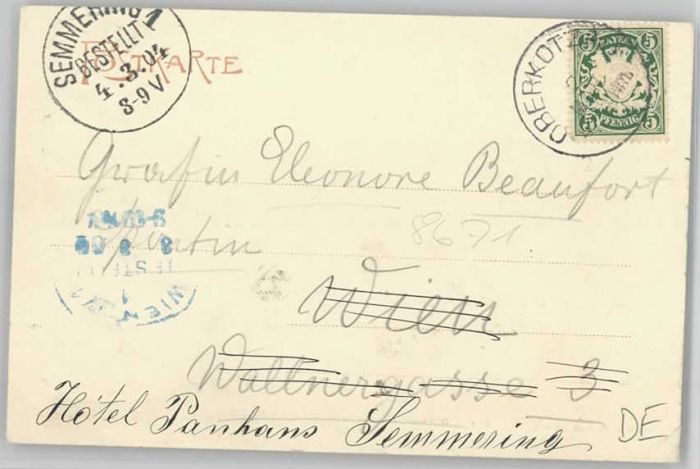 SEMMERING 1
BESTELLT
4.3.04
8-9V
POSTKARTE
OBERKOTZ
BAYERN
5 5
5 PFENNIG 5
Gräfin Eleonore Beaufort
8671
WIEN
Wien
Wallnergasse 3
Hôtel Panhans Semmering
DE